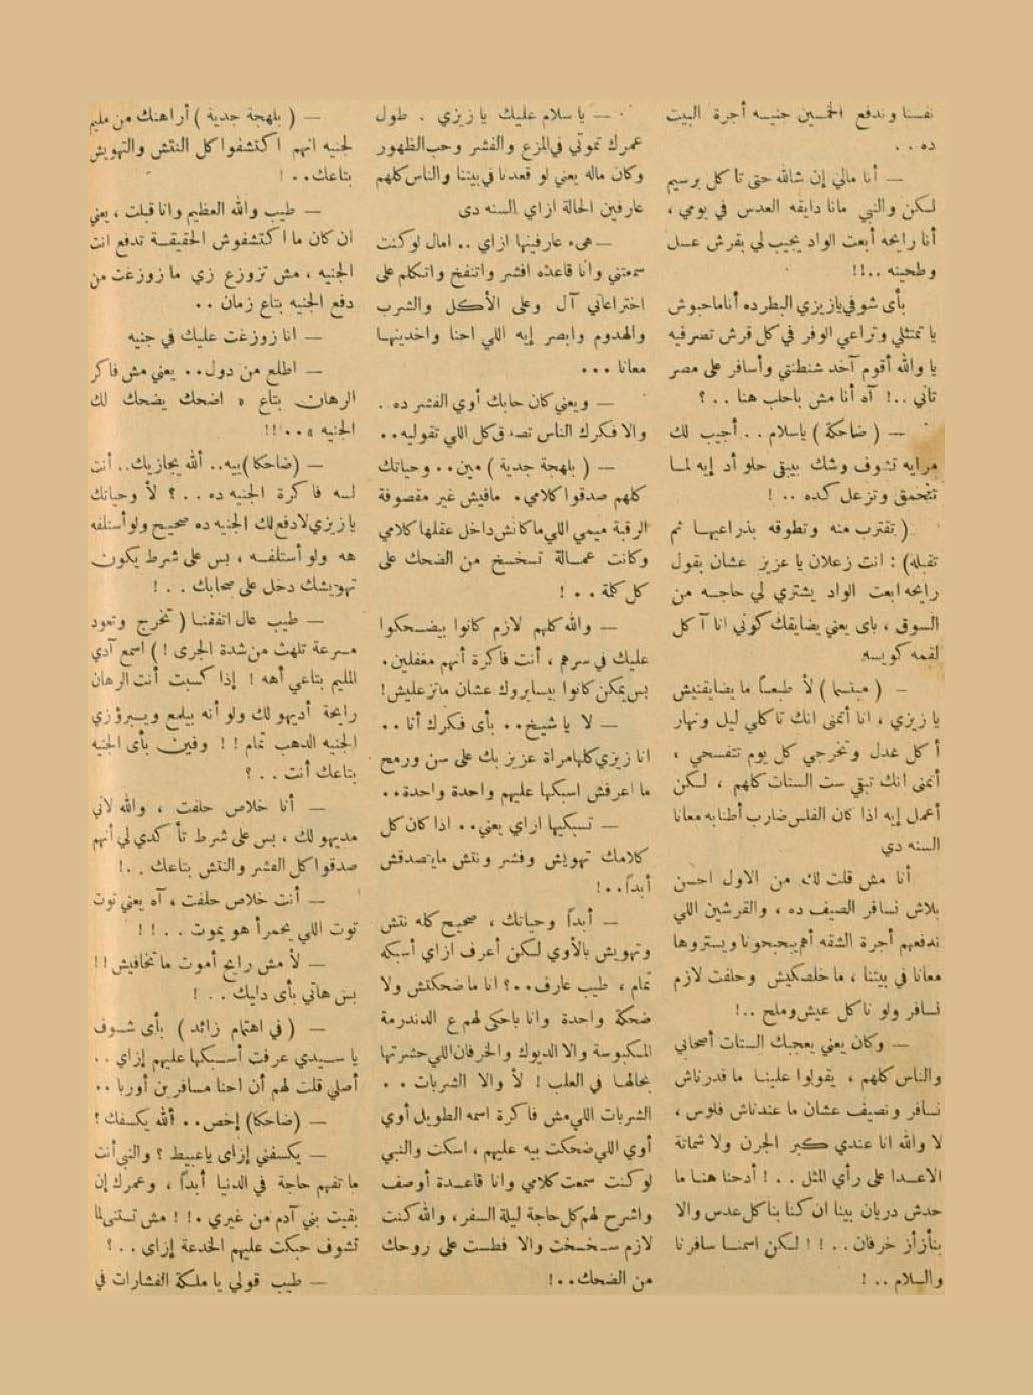 نفسنا وندفع الخمسين جنيه أجرة البيت
ده . .
— أنا مالي إن شالله حتى تاكل برسيم
لكن والنبي مانا دايقه العدس في يومي ،
أنا رايحه أبعت الواد يجيب لي بقرش عسل
وطحينه ..!!
بأى شوفي يا زيزي البطر ده أنا ماحبوش
يا تمتثلي وتراعي الوفر في كل قرش تصرفيه
يا والله أقوم آخد شنطتي وأسافر على مصر
تاني ..! آه أنا مش باحلب هنا . . ؟
— ( ضاحكة ) ياسلام . . أجيب لك
مرايه تشوف وشك بيبقى حلو أد إيه لما
تتحمق وتزعل كده . . !
( تقترب منه وتطوقه بذراعيها ثم
تقبله ) : انت زعلان يا عزيز عشان بقول
رايحه ابعت الواد يشتري لي حاجه من
السوق ، باى يعني يضايقك كوني انا آكل
لقمه كويسه
— ( مبتسما ) لأ طبعاً ما يضايقنيش
يا زيزي ، انا أتمنى انك تاكلي ليل ونهار
أكل عدل وتخرجي كل يوم تتفسحي ،
أتمنى انك تبقي ست الستات كلهم ، لكن
أعمل إيه اذا كان الفلس ضارب أطنابه معانا
السنه دي
أنا مش قلت لك من الاول احسن
بلاش نسافر الصيف ده ، والقرشين اللي
ندفعهم أجرة الشقه أهم يبحبحونا ويستروها
معانا في بيتنا ، ما خلصكيش وحلفت لازم
نسافر ولو ناكل عيش وملح ..!
— وكان يعني يعجبك الستات أصحابي
والناس كلهم ، يقولوا علينا ما قدرناش
نسافر ونصيف عشان ما عندناش فلوس ،
لا والله انا عندي كبر الجرن ولا شماتة
الاعدا على رأي المثل . . ! أدحنا هنا ما
حدش دريان بينا ان كنا بناكل عدس والا
بنأزأز خرفان . . !! لكن اسمنا سافرنا
والسلام . . !
— يا سلام عليك يا زيزي . طول
عمرك تموتي في المزع والفشر وحب الظهور
وكان ماله يعني لو قعدنا في بيتنا والناس كلهم
عارفين الحالة ازاي السنه دى
— هىء عارفينها ازاي .. امال لو كنت
سمعتني وانا قاعده افشر واتنفخ واتكلم على
اختراعاتي آل وعلى الأكل والشرب
والهدوم وابصر إيه اللي احنا واخدينها
معانا ...
— ويعني كان حابك أوي الفشر ده .
والا فكرك الناس تصدق كل اللي تقوليه ..
— ( بلهجة جدية ) مين .. وحياتك
كلهم صدقوا كلامي . مافيش غير مقصوفة
الرقبة ميمي اللي ما كانش داخل عقلها كلامي
وكانت عمالة تسخسخ من الضحك على
كل كلة . . !
— والله كلهم لازم كانوا بيضحكوا
عليك في سرهم ، أنت فاكرة أنهم مغفلين .
بس يمكن كانوا بيسايروك عشان ماتزعليش !
— لا يا شيخ .. بأى فكرك أنا ..
انا زيزي كلها مراة عزيز بك على سن ورمح
ما اعرفش اسبكها عليهم واحدة واحدة ..
— تسبكيها ازاي يعني .. اذا كان كل
كلامك تهويش وفشر ونتش مايتصدقش
أبداً ..!
— أبداً وحياتك ، صحيح كله نتش
وتهويش بالأوي لكن أعرف ازاي أسبكه
تمام ، طيب عارف ..؟ انا ما ضحكتش ولا
ضحكة واحدة وانا باحكى لهم ع الدندرمة
المكبوسة والا الديوك والخرفان اللي حشرتها
بحالها في العلب ! لأ والا الشربات . .
الشربات اللي مش فاكرة اسمه الطويل أوي
أوي اللي ضحكت بيه عليهم ، اسكت والنبي
لو كنت سمعت كلامي وانا قاعدة أوصف
واشرح لهم كل حاجة ليلة السفر ، والله كنت
لازم سخسخت والا فطست على روحك
من الضحك ..!
— ( بلهجة جدية ) أراهنك من مليم
لجنيه انهم اكتشفوا كل النتش والتهويش
بتاعك . . !
— طيب والله العظيم وانا قبلت ، يعني
ان كان ما اكتشفوش الحقيقة تدفع انت
الجنيه ، مش تزوزع زي ما زوزغت من
دفع الجنيه بتاع زمان . .
— انا زوزغت عليك في جنيه
— اطلع من دول .. يعني مش فاكر
الرهان بتاع « اضحك يضحك لك
الجنيه » ..!!
— (ضاحكا) بيه .. ألله يجازيك .. أنت
لسه فاكرة الجنيه ده . . ؟ لأ وحياتك
يا زيزي لادفع لك الجنيه ده صحيح ولو أستلفه
هه ولو أستلفه ، بس على شرط يكون
تهويشك دخل على صحابك . . !
— طيب عال اتفقنا ( تخرج وتعود
مسرعة تلهث من شدة الجرى ! ) اسمع آدي
المليم بتاعي أهه ! إذا كسبت أنت الرهان
رايحة أديهو لك ولو أنه بيلمع ويبرؤ زي
الجنيه الدهب تمام !! وفين بأى الجنيه
بتاعك أنت . . ؟
— أنا خلاص حلفت ، والله لاني
مديهو لك ، بس على شرط تأكدي لي أنهم
صدقوا كل الفشر والنتش بتاعك . .!
— أنت خلاص حلفت ، آه يعني توت
توت اللي يحمرأ هو يموت . . !!
— لأ مش رايح أموت ما تخافيش !!
بس هاتي بأى دليك . . !
— ( في اهتمام زائد ) بأى شوف
يا سيدي عرفت أسبكها عليهم إزاي . .
أصلي قلت لهم أن احنا مسافرين أوربا ..
— (ضاحكا) إخص .. ألله يكسفك ؟
— يكسفني إزاى يا عبيط ؟ والنبي أنت
ما تفهم حاجة في الدنيا أبداً ، وعمرك إن
بقيت بني آدم من غيري .!! مش تستنى لما
تشوف حبكت عليهم الخدعة إزاي . . ؟
— طيب قولي يا ملكة الفشارات في